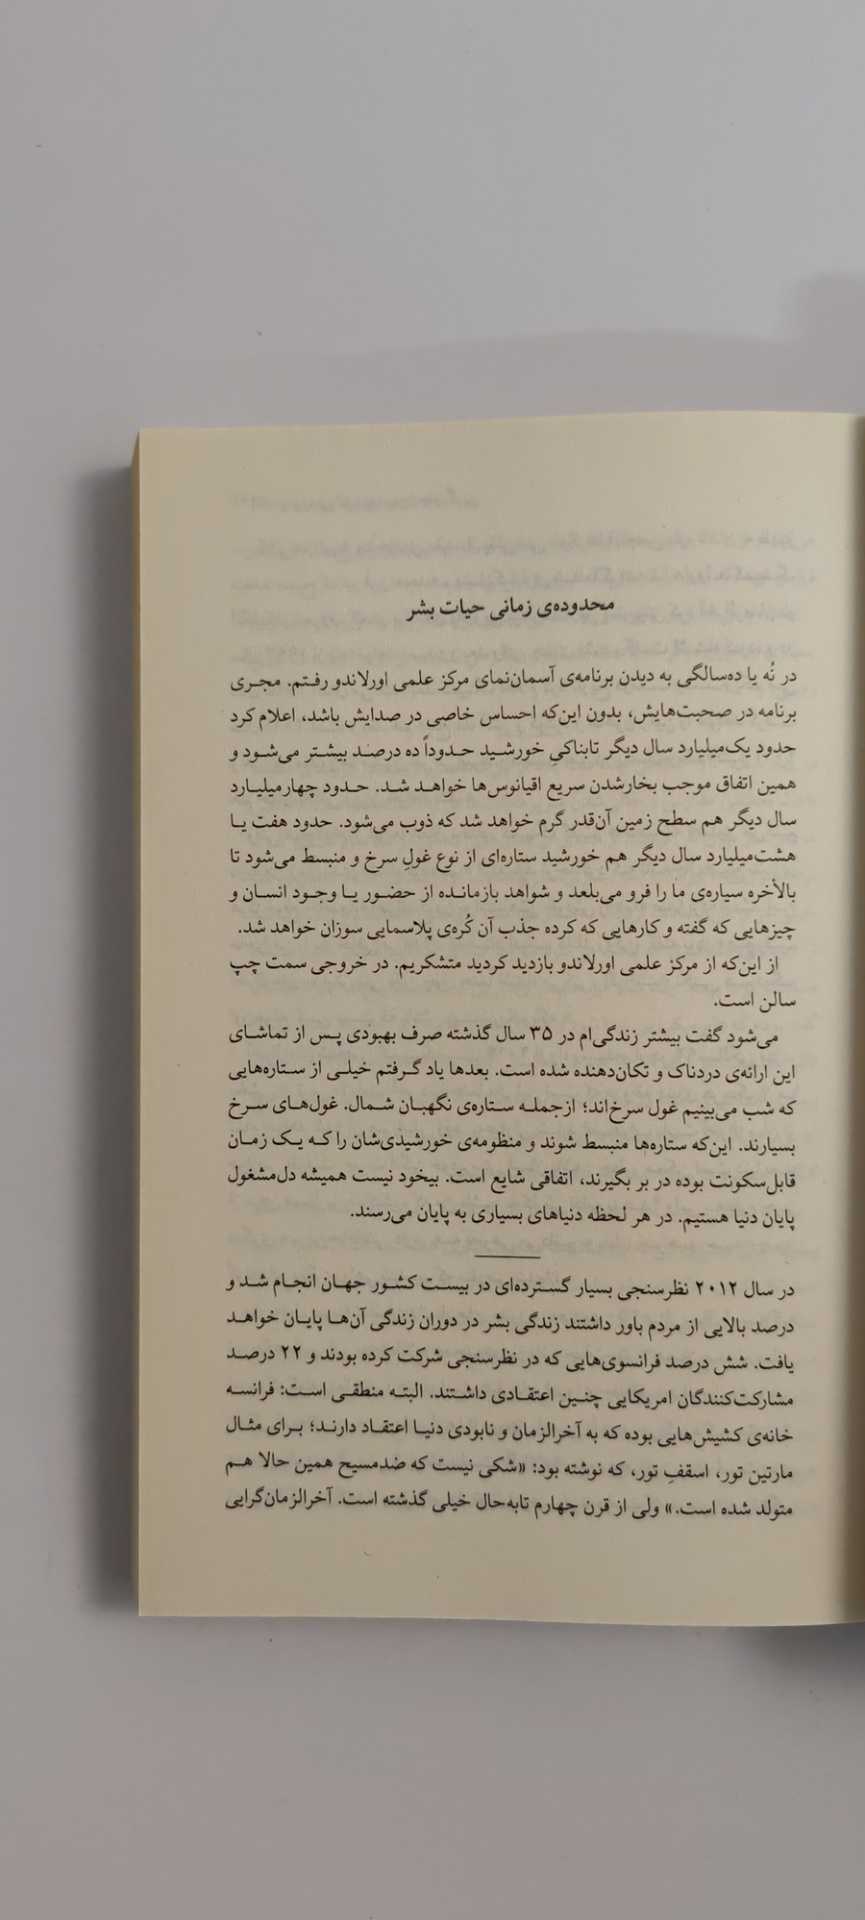 محدوده‌ی زمانی حیات بشر
در نُه یا ده‌سالگی به دیدن برنامه‌ی آسمان‌نمای مرکز علمی اورلاندو رفتم. مجری
برنامه در صحبت‌هایش، بدون این‌که احساس خاصی در صدایش باشد، اعلام کرد
حدود یک‌میلیارد سال دیگر تابناکیِ خورشید حدوداً ده درصد بیشتر می‌شود و
همین اتفاق موجب بخارشدن سریع اقیانوس‌ها خواهد شد. حدود چهارمیلیارد
سال دیگر هم سطح زمین آن‌قدر گرم خواهد شد که ذوب می‌شود. حدود هفت یا
هشت‌میلیارد سال دیگر هم خورشید ستاره‌ای از نوع غولِ سرخ و منبسط می‌شود تا
بالأخره سیاره‌ی ما را فرو می‌بلعد و شواهد بازمانده از حضور یا وجود انسان و
چیزهایی که گفته و کارهایی که کرده جذب آن کُره‌ی پلاسمایی سوزان خواهد شد.
از این‌که از مرکز علمی اورلاندو بازدید کردید متشکریم. در خروجی سمت چپ
سالن است.
می‌شود گفت بیشتر زندگی‌ام در ۳۵ سال گذشته صرف بهبودی پس از تماشای
این ارائه‌ی دردناک و تکان‌دهنده شده است. بعدها یاد گرفتم خیلی از ستاره‌هایی
که شب می‌بینیم غول سرخ‌اند؛ ازجمله ستاره‌ی نگهبان شمال. غول‌های سرخ
بسیارند. این‌که ستاره‌ها منبسط شوند و منظومه‌ی خورشیدی‌شان را که یک زمان
قابل‌سکونت بوده در بر بگیرند، اتفاقی شایع است. بیخود نیست همیشه دل‌مشغول
پایان دنیا هستیم. در هر لحظه دنیاهای بسیاری به پایان می‌رسند.
در سال ۲۰۱۲ نظرسنجی بسیار گسترده‌ای در بیست کشور جهان انجام شد و
درصد بالایی از مردم باور داشتند زندگی بشر در دوران زندگی آن‌ها پایان خواهد
یافت. شش درصد فرانسوی‌هایی که در نظرسنجی شرکت کرده بودند و ۲۲ درصد
مشارکت‌کنندگان امریکایی چنین اعتقادی داشتند. البته منطقی است: فرانسه
خانه‌ی کشیش‌هایی بوده که به آخرالزمان و نابودی دنیا اعتقاد دارند؛ برای مثال
مارتین تور، اسقفِ تور، که نوشته بود: «شکی نیست که ضدمسیح همین حالا هم
متولد شده است.» ولی از قرن چهارم تابه‌حال خیلی گذشته است. آخرالزمان‌گرایی